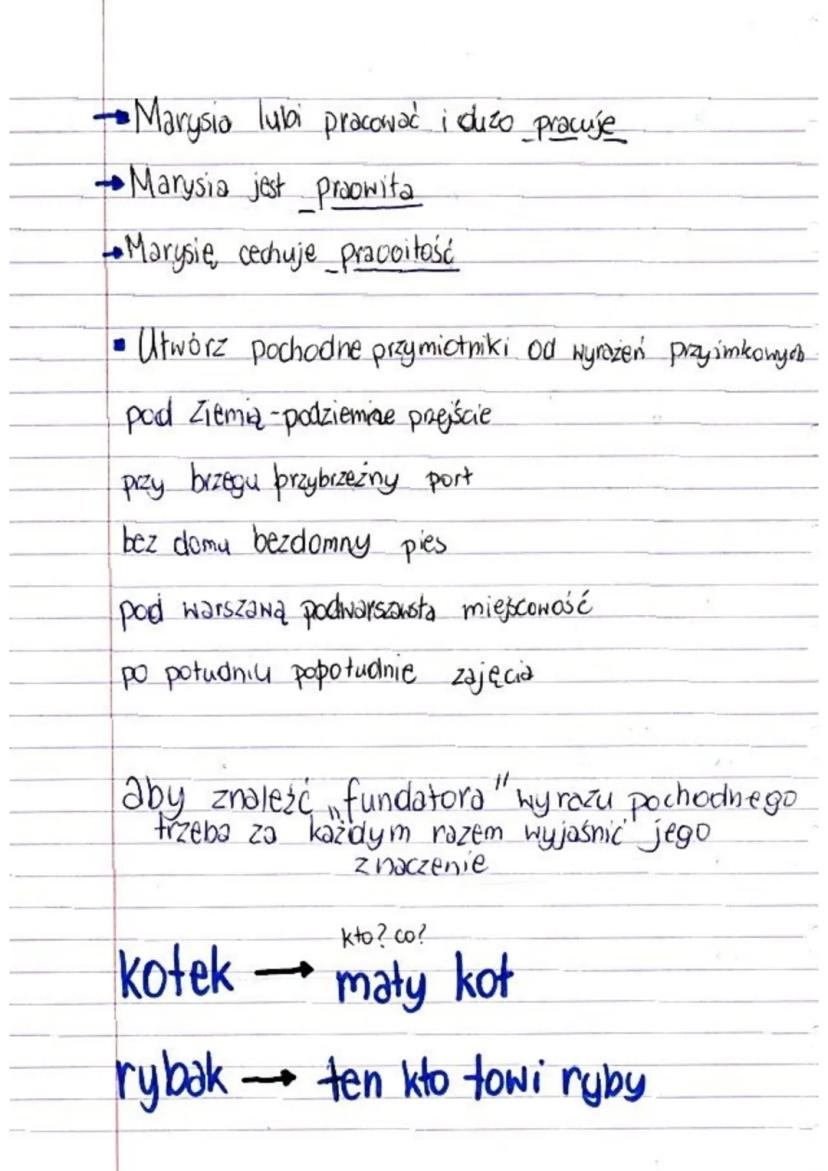 → Marysia lubi pracować i dużo pracuje
→ Marysia jest praowita
→ Marysię cechuje pracoitość
▪ Utwórz pochodne przymiotniki od wyrażeń przyimkowych
pod Ziemią - podziemne przejście
przy brzegu przybrzeżny port
bez domu bezdomny pies
pod warszawą podwarszawska miejscowość
po południu popołudnie zajęcia
aby znaleźć „fundatora" wyrazu pochodnego
trzeba za każdym razem wyjaśnić jego
znaczenie
kto? co?
kotek → mały kot
rybak → ten kto łowi ryby